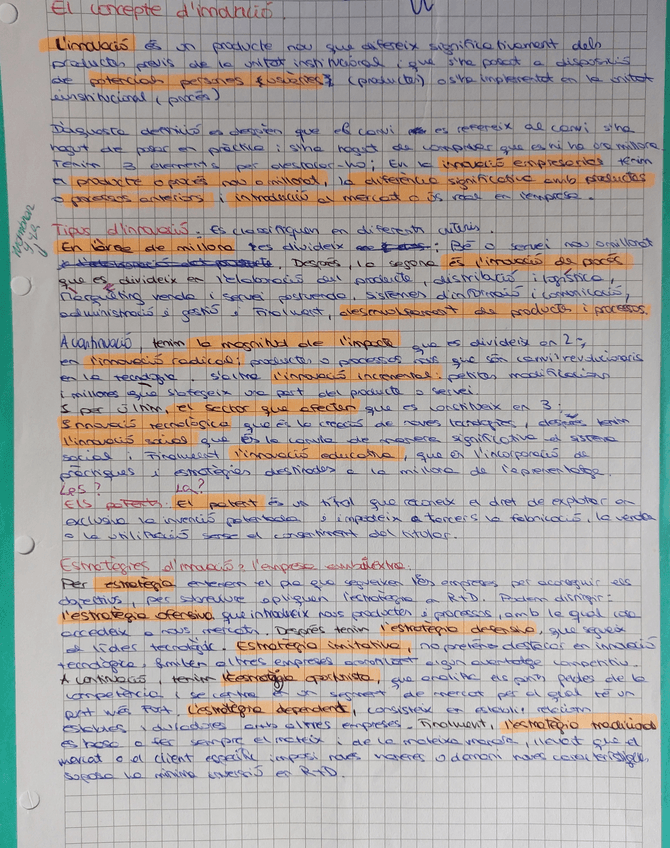 El concepte d'innovació.
L'innovació és un producte nou que difereix significativament dels
productes previs de la unitat institucional i que s'ha posat a disposició
de potencials persones usuàries (producte) o s'ha implementat en la unitat
institucional (procés)
D'aquesta definició es desprèn que el canvi es refereix al canvi s'ha
hagut de posar en pràctica i s'ha hagut de comprovar que es ni ha una millora
Tenim 3 elements per destacar-ho; En la innovació empresarial tenim
el producte o procés nou o millorat, la diferència significativa amb productes
o processos anteriors i introducció al mercat o ús real en l'empresa.
Tipus d'innovació. Es classifiquen en diferents criteris.
En l'àrea de millora es divideix : Bé o servei nou o millorat
Després, la segona és l'innovació de procés
que es divideix en l'elaboració del producte, distribució i logística,
Màrqueting venda i servei postvenda, sistemes d'informació i comunicació,
administració i gestió i finalment, desenvolupament de producte i processos.
A continuació tenim la magnitud de l'impacte que es divideix en 2:
en l'innovació radical: productes o processos nous que són canvi revolucionaris
en la tecnologia. l'innovació incremental: petites modificacions
i millores que s'afegeix una part del producte o servei
I per últim, el sector que afecten que es constitueix en 3:
Innovació tecnològica que és la creació de noves tecnologies, després tenim
l'innovació social que és la canvia de manera significativa el sistema
social i Finalment l'innovació educativa, que en l'incorporació de
pràctiques i estratègies destinades a la millora de l'aprenentatge.
Les? La?
Els patents. El patent és un títol que reconeix el dret de explotar en
exclusiva la invenció patentada i impedeix a tercers la fabricació, la venda
o la utilització sense el consentiment del titular.
Estratègies d'innovació: l'empresa ambidextra.
Per estratègia entenem el pla que segueixen les empreses per aconseguir els
objectius, per sobreviure apliquen l'estratègia a R+D. Podem distingir:
l'estratègia ofensiva que introdueix nous productes i processos, amb la qual cosa
accedeix a nous mercats. Després tenim l'estratègia defensiva, que segueix
al líder tecnològic. Estratègia imitativa, no pretén destacar en innovació
tecnològica, imiten altres empreses aprofitant algun avantatge competitiu.
A continuació, tenim l'estratègia oportunista, que analitza els punts febles de la
competència i se centra en un segment de mercat per al qual té un
punt més fort. L'estratègia dependent, consisteix en establir relacions
estables i duradores amb altres empreses. Finalment, l'estratègia tradicional
es basa a fer sempre el mateix i de la mateixa manera, llevat que el
mercat o el client específic imposi noves maneres o demani noves característiques,
suposa la mínima inversió en R+D.